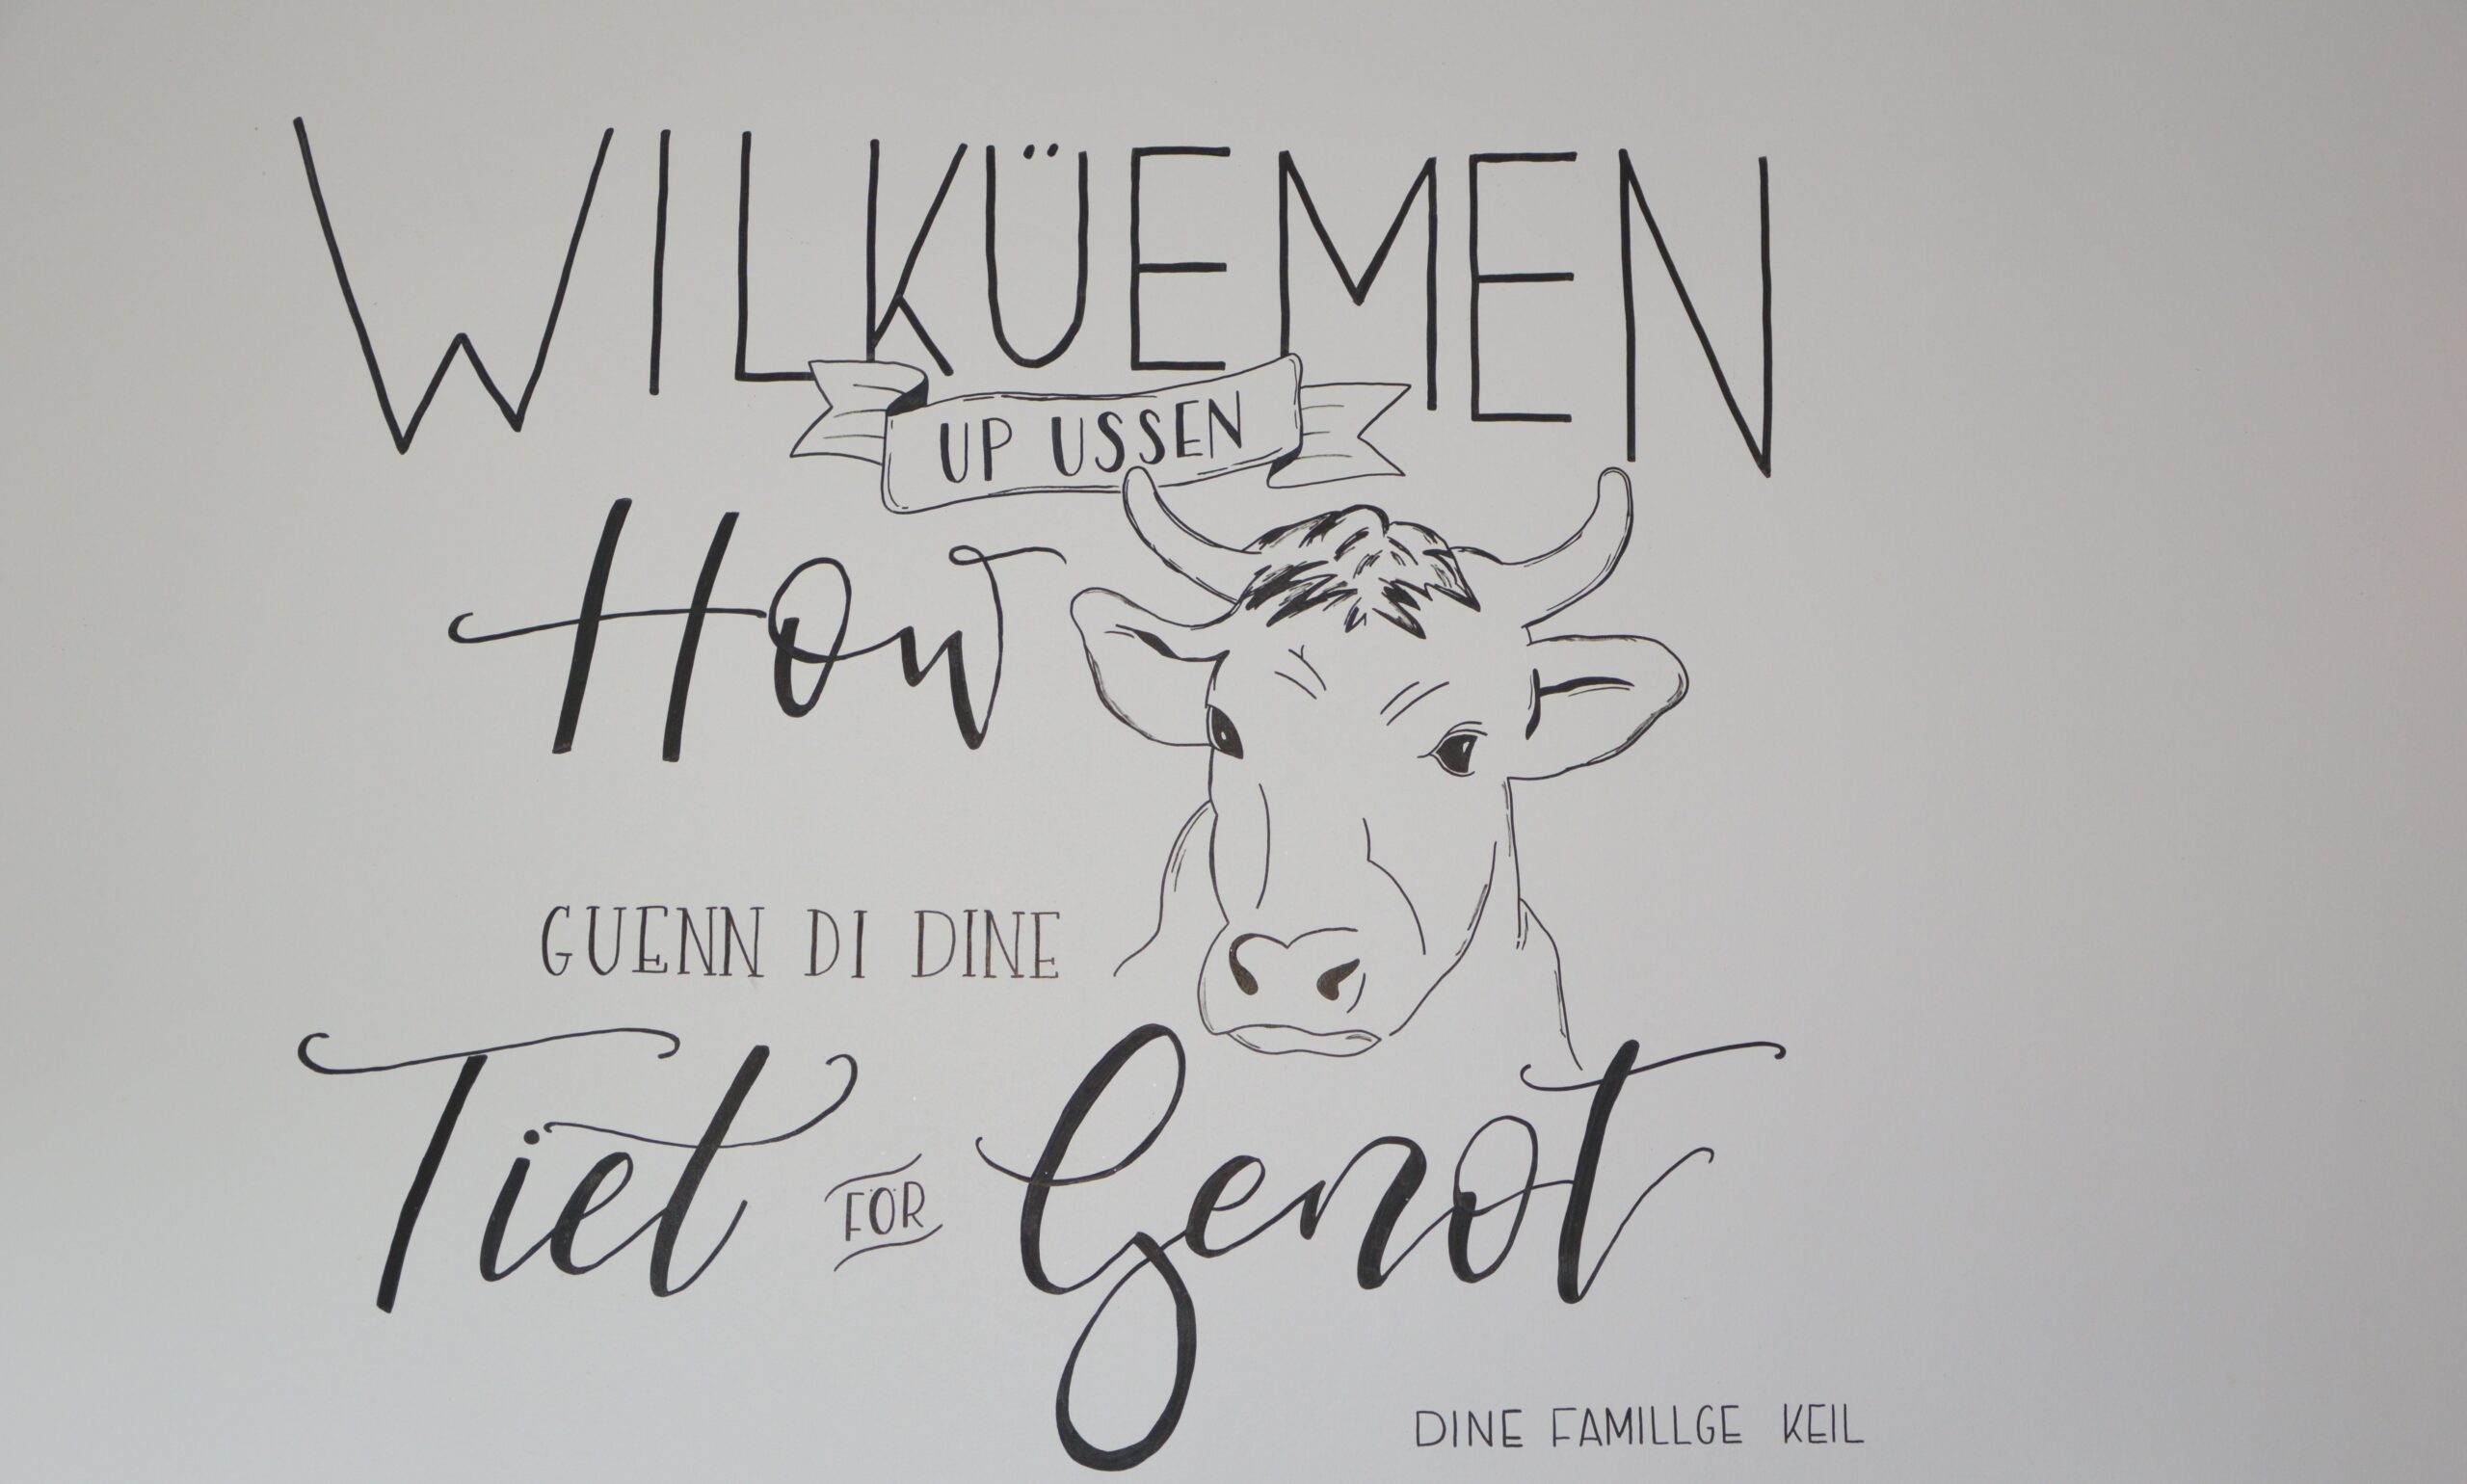 WILKÜEMEN
UP USSEN
How
GUENN DI DINE
Tiet FÖR Genot
DINE FAMILLGE KEIL